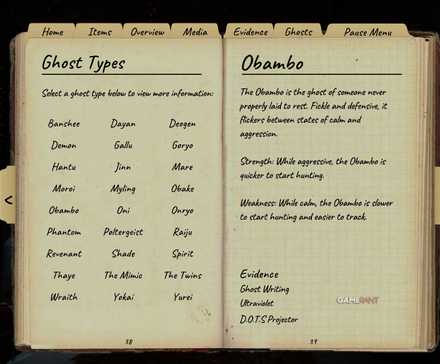 Home Items Overview Media Evidence Ghosts Pause Menu
Ghost Types
Select a ghost type below to view more information:
Banshee Dayan Deogen
Demon Gallu Goryo
Hantu Jinn Mare
Moroi Myling Obake
Obambo Oni Onryo
Phantom Poltergeist Raiju
Revenant Shade Spirit
Thaye The Mimic The Twins
Wraith Yokai Yurei
38
Obambo
The Obambo is the ghost of someone never
properly laid to rest. Fickle and defensive, it
flickers between states of calm and
aggression.
Strength: While aggressive, the Obambo is
quicker to start hunting.
Weakness: While calm, the Obambo is slower
to start hunting and easier to track.
Evidence
Ghost Writing
Ultraviolet
D.O.T.S Projector
GAMERANT
39